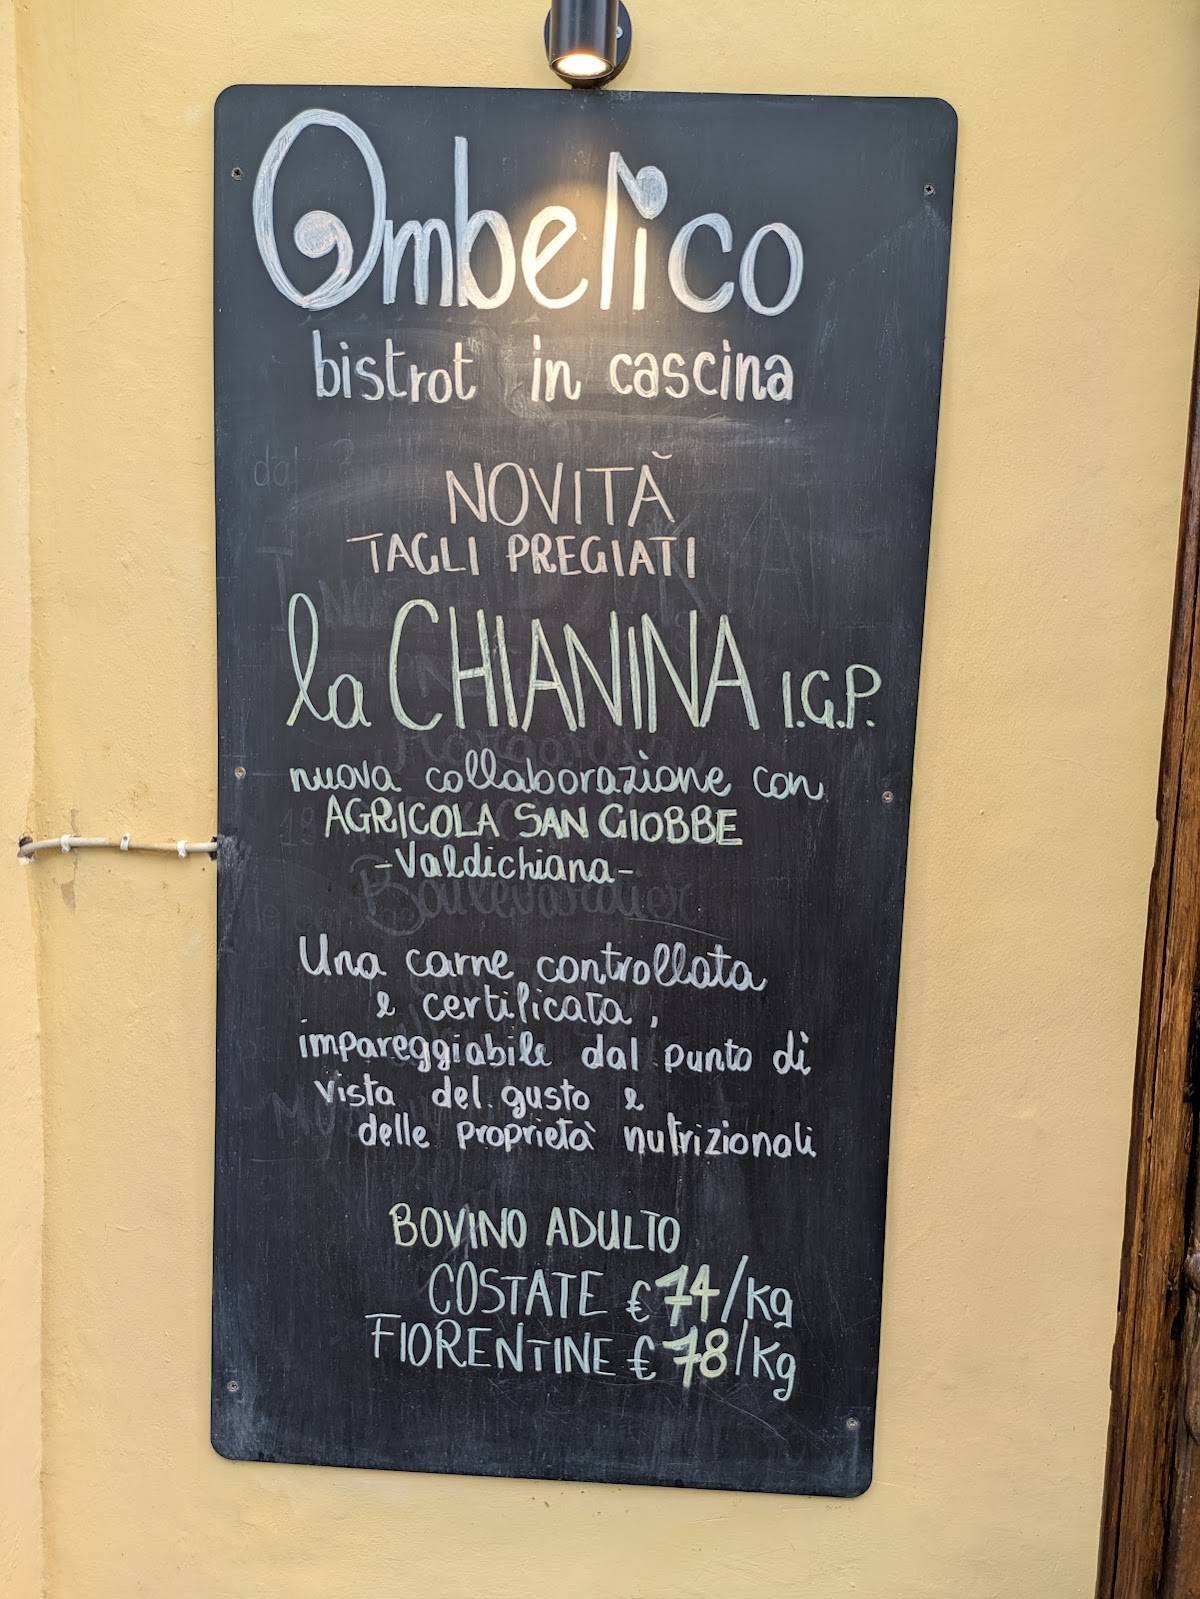 Ombelico
bistrot in cascina
NOVITÀ
TAGLI PREGIATI
la CHIANINA I.G.P.
nuova collaborazione con
AGRICOLA SAN GIOBBE
-Valdichiana-
Una carne controllata
e certificata,
impareggiabile dal punto di
vista del gusto e
delle proprietà nutrizionali
BOVINO ADULTO
COSTATE €74/kg
FIORENTINE €78/kg